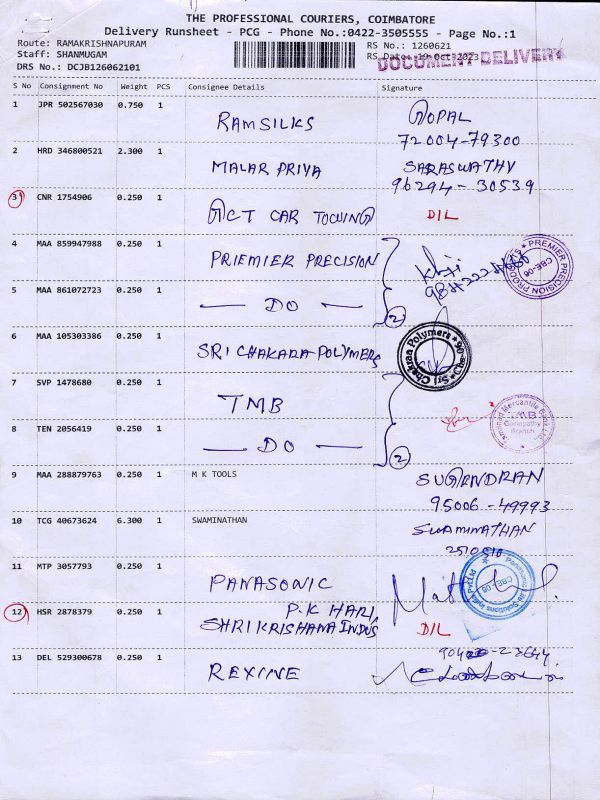 THE PROFESSIONAL COURIERS, COIMBATORE
Delivery Runsheet - PCG - Phone No.:0422-3505555 - Page No.:1
Route: RAMAKRISHNAPURAM
RS No.: 1260621
Staff: SHANMUGAM
RS Date: 19 Oct 2023
DOCUMENT DELIVERY
DRS No.: DCJB126062101
S No Consignment No Weight PCS Consignee Details Signature
1 JPR 502567030 0.750 1 RAMSILKS GOPAL
72004-79300
2 HRD 346800521 2.300 1 MALAR PRIYA SARASWATHY
96294-30539
3 CNR 1754906 0.250 1 GCT CAR TOWING DIL
4 MAA 859947988 0.250 1 PRIEMIER PRECISION
PREMIER PRECISION PRODUCTS CBE-06
5 MAA 861072723 0.250 1 — DO — 2
6 MAA 105303386 0.250 1 SRI CHAKARA POLYMERS
Sri Chakraa Polymers
7 SVP 1478680 0.250 1 TMB
Tamilnad Mercantile Bank Ltd.
TMB
Ganapathy
Branch
8 TEN 2056419 0.250 1 — DO — 2
9 MAA 288879763 0.250 1 M K TOOLS SUGANDRAN
95006-49993
10 TCG 40673624 6.300 1 SWAMINATHAN SWAMINATHAN
2510510
11 MTP 3057793 0.250 1 PANASONIC
Panasonic Life Solutions India Pvt Ltd
12 HSR 2878379 0.250 1 P.K HARI,
SHRI KRISHANA INDUS DIL
13 DEL 529300678 0.250 1 REXINE